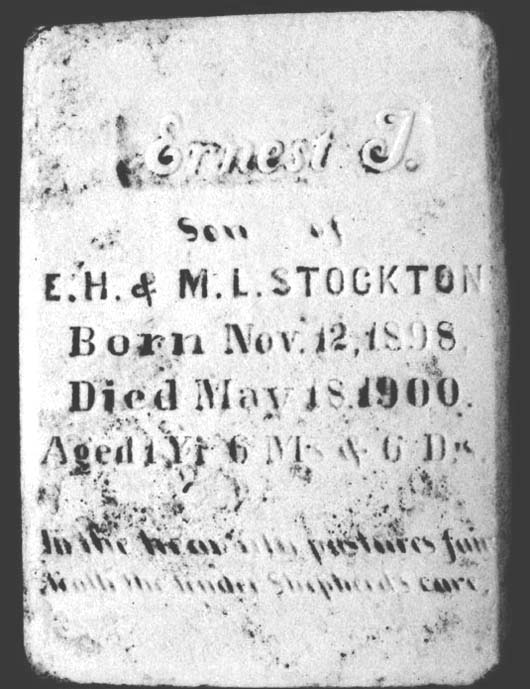 Ernest J.
Son of
E. H. & M. L. STOCKTON
Born Nov. 12, 1898.
Died May 18, 1900.
Aged 1 Yr 6 Ms & 6 Ds.
In the pastures
the tender Shepherds care,